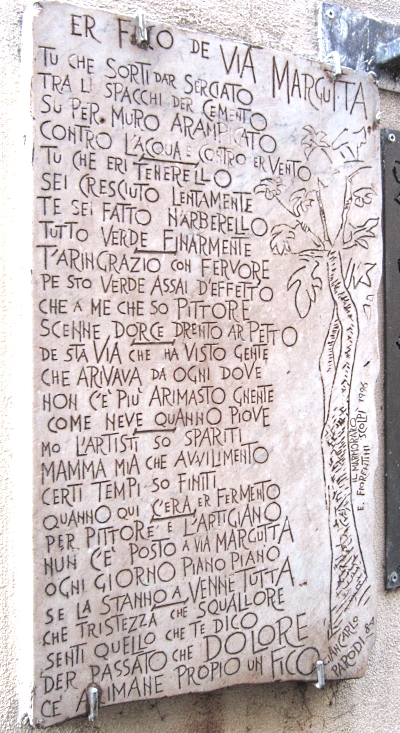 ER FICO DE VIA MARGUTTA
TU CHE SORTI DAR SERCIATO
TRA LI SPACCHI DER CEMENTO
SU PER MURO ARAMPICATO
CONTRO L'ACQUA E CONTRO ER VENTO
TU CHE ERI TENERELLO
SEI CRESCIUTO LENTAMENTE
TE SEI FATTO N'ARBERELLO
TUTTO VERDE FINARMENTE
T'ARINGRAZIO CON FERVORE
PE STO VERDE ASSAI D'EFFETTO
CHE A ME CHE SO PITTORE
SCENNE DORCE DRENTO AR PETTO
DE STA VIA CHE HA VISTO GENTE
CHE ARIVAVA DA OGNI DOVE
NON C'E' PIU' ARIMASTO GNENTE
COME NEVE QUANNO PIOVE
MO L'ARTISTI SO SPARITI
MAMMA MIA CHE AVVILIMENTO
CERTI TEMPI SO FINITI
QUANNO QUI C'ERA ER FERMENTO
PER PITTORE E L'ARTIGIANO
NUN C'E' POSTO A VIA MARGUTTA
OGNI GIORNO PIANO PIANO
SE LA STANNO A VENNE TUTTA
CHE TRISTEZZA CHE SQUALLORE
SENTI QUELLO CHE TE DICO
DER PASSATO CHE DOLORE
CE ARIMANE PROPIO UN FICO
GIANCARLO
PARODI 84
IL MARMORARO
E. FIORENTINI SCOLPI 1996